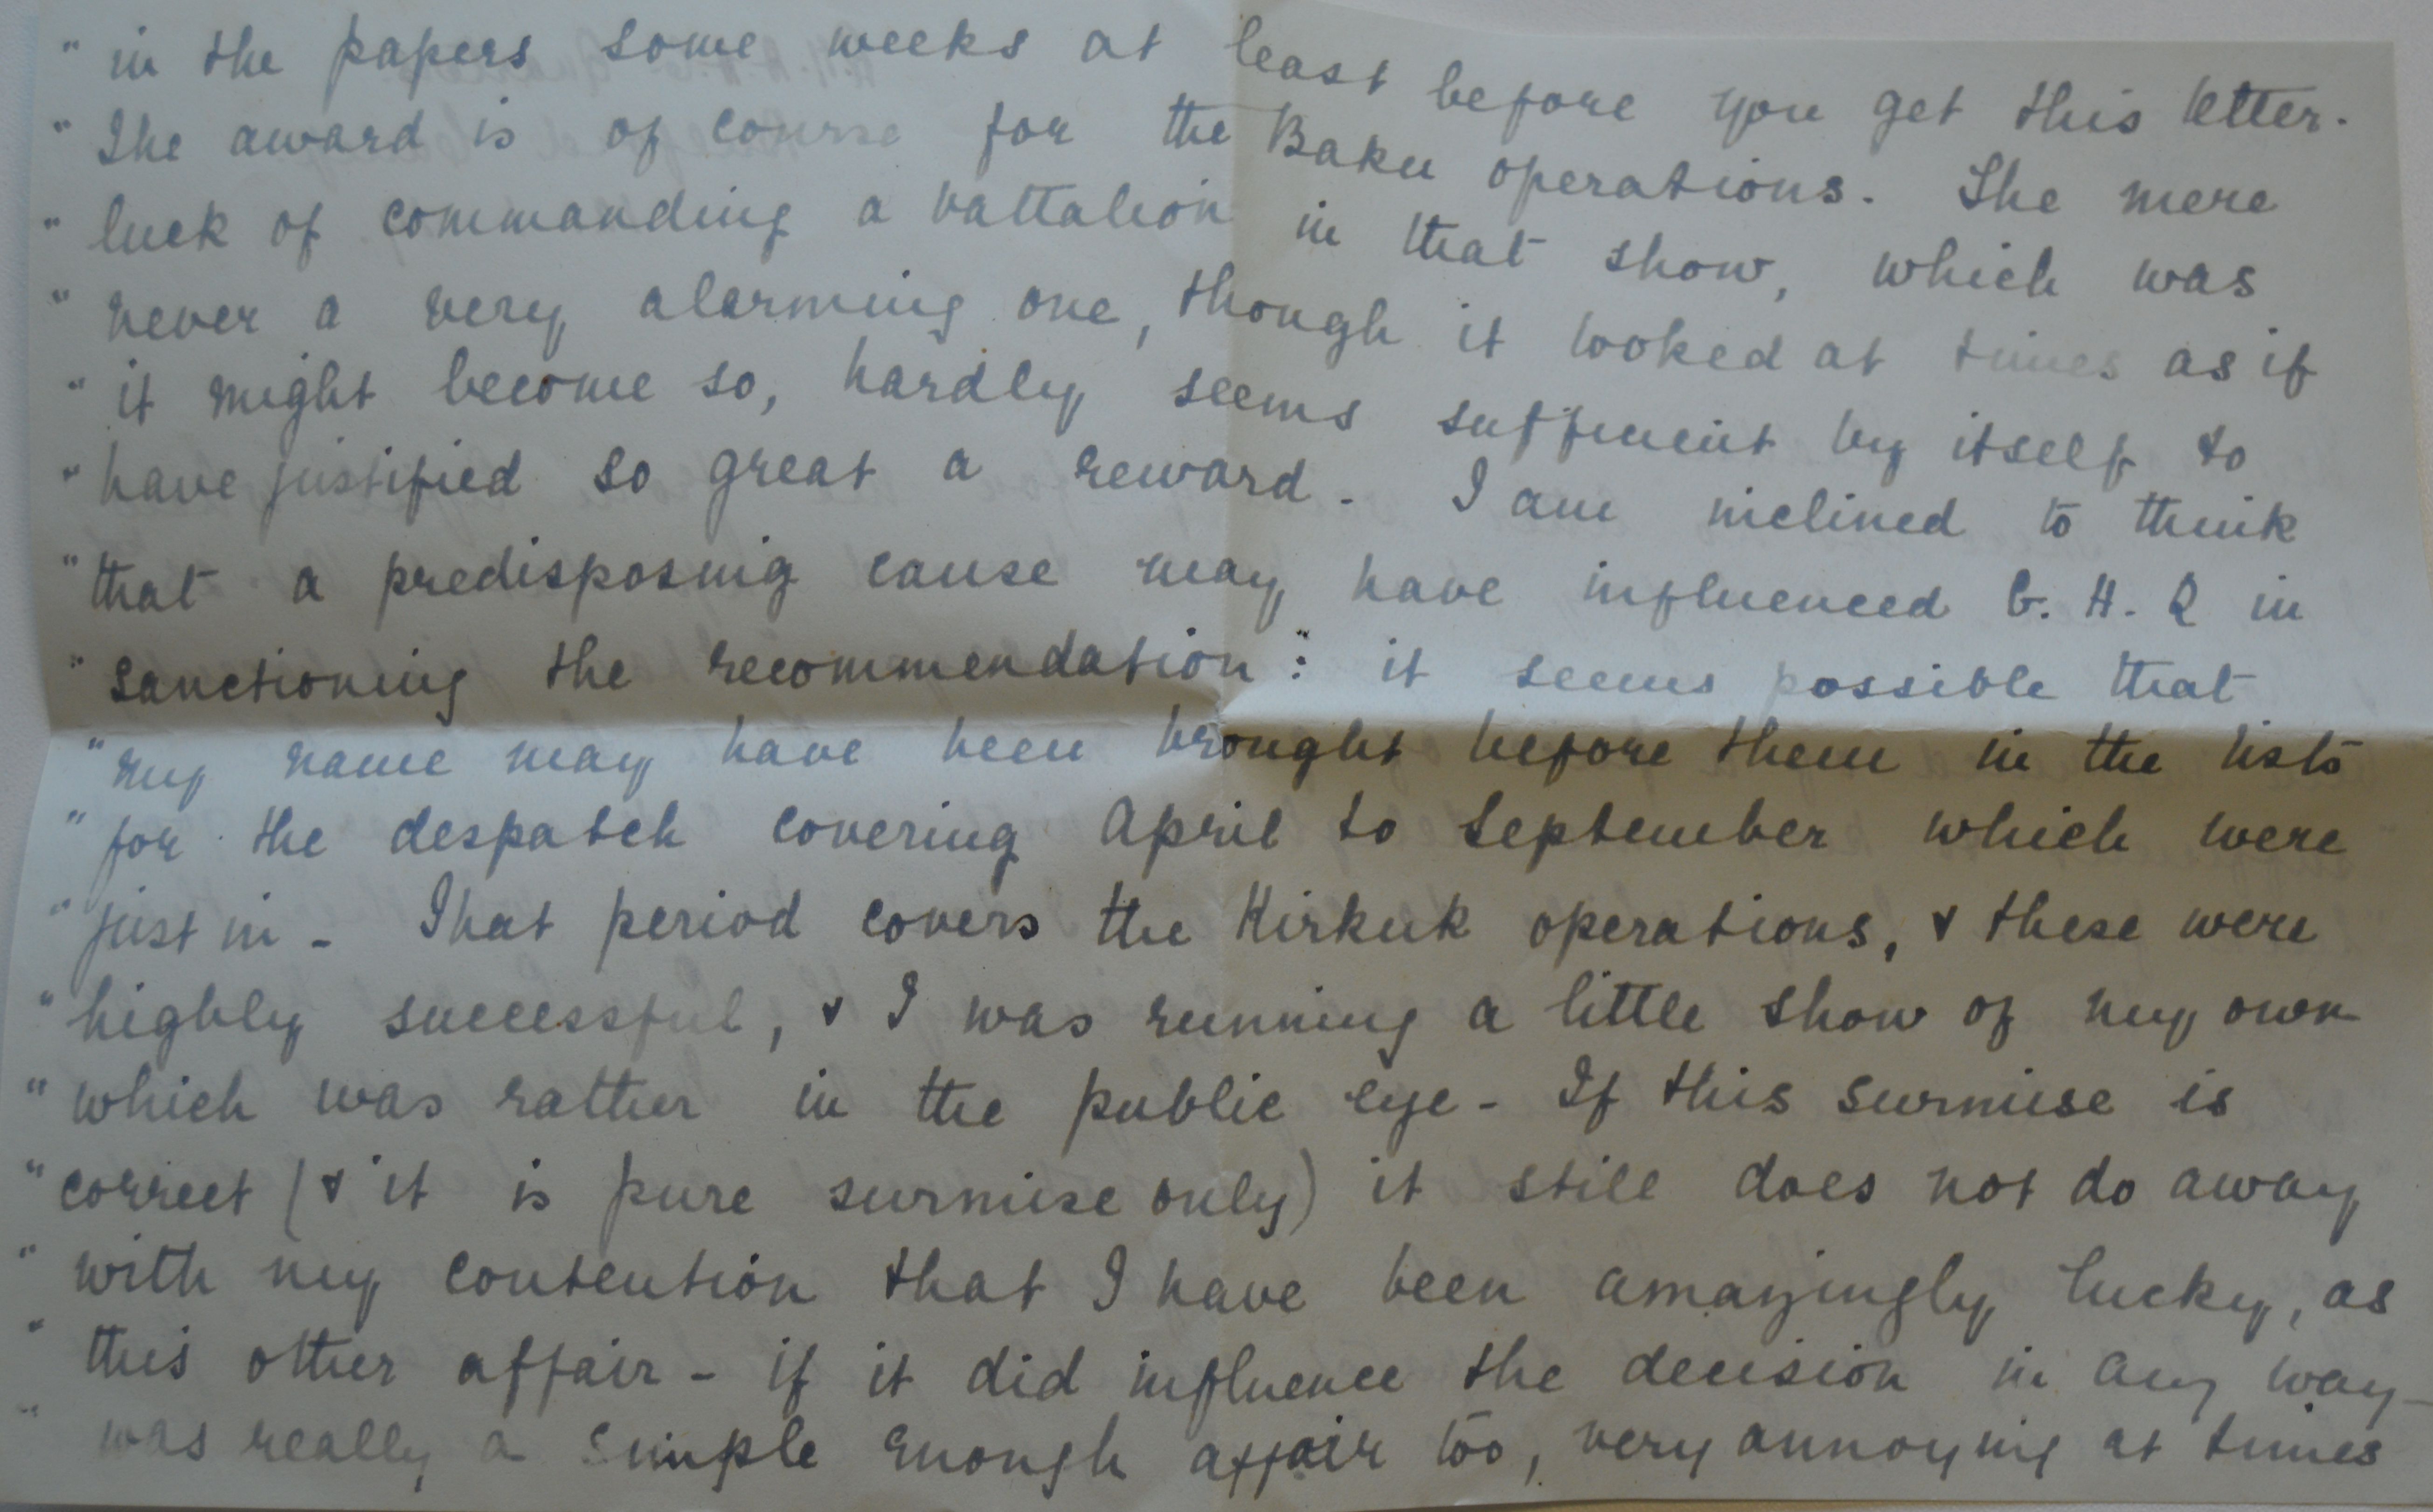 " in the papers some weeks at least before you get this letter.
" The award is of course for the Baku operations. The mere
" luck of commanding a battalion in that show, which was
" never a very alarming one, though it looked at times as if
" it might become so, hardly seems sufficient by itself to
" have justified so great a reward. I am inclined to think
" that a predisposing cause may have influenced G. H. Q in
" sanctioning the recommendation: it seems possible that
" my name may have been brought before them in the lists
" for the despatch covering April to September which were
" just in - That period covers the Kirkuk operations, & these were
" highly successful, & I was running a little show of my own
" which was rather in the public eye - If this surmise is
" correct (& it is pure surmise only) it still does not do away
" with my contention that I have been amazingly lucky, as
" this other affair - if it did influence the decision in any way -
" was really a simple enough affair too, very annoying at times